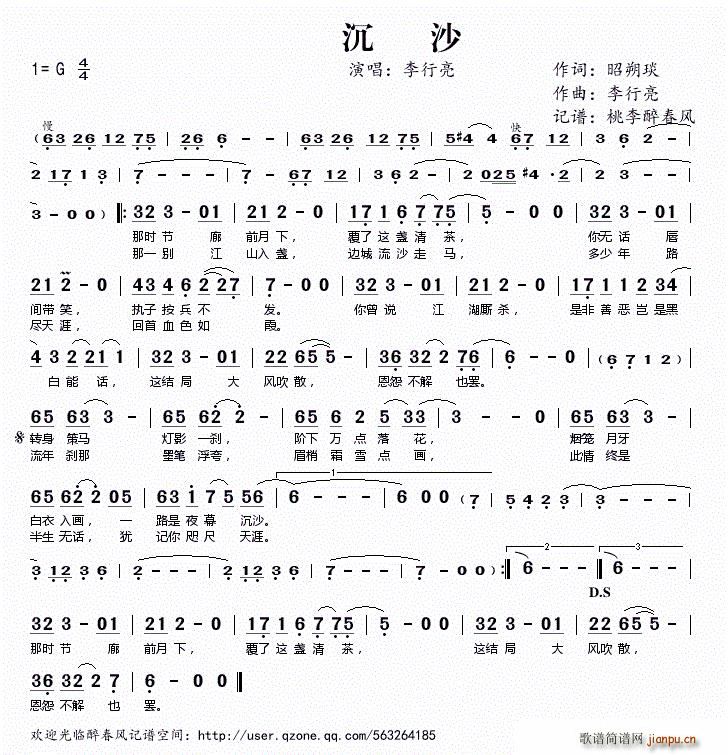 沉 沙
1=G 4/4
演唱：李行亮
作词：昭朔琰
作曲：李行亮
记谱：桃李醉春风
慢 快
( 63 26 12 75 | 26 6 - - | 63 26 12 75 | 5#4 4 67 12 | 3 6 2 - |
2 17 1 3 | 7 - - - | 7 - 67 12 | 2 025 #4 · 2 | 2 3 - - |
3 - 00 ) ‖: 32 3 - 01 | 21 2 - 0 | 17 1 6 7 75 | 5 - 00 | 32 3 - 01 |
那时 节 廊 前月 下， 覆了 这 盏 清 茶， 你无 话 唇
那一 别 江 山入 盏， 边城 流 沙 走 马， 多少 年 路
21 2 - 0 | 43 4 6 2 27 | 7 - 00 | 32 3 - 01 | 21 2 - 0 | 17 1 2 1 2 34 |
间带 笑， 执子 按 兵 不 发。 你曾 说 江 湖厮 杀， 是非 善 恶 岂 是黑
尽天 涯， 回首 血 色 如 霞。
4 3 2 21 1 | 32 3 - 01 | 22 65 5 - | 36 32 2 76 | 6 - - 0 | ( 6 7 1 2 )
白 能 话， 这结 局 大 风吹 散， 恩怨 不解 也罢。
65 63 3 - | 65 62 2 - | 65 6 2 5 33 | 3 - - 0 | 65 63 3 - |
转身 策马 灯影 一刹， 阶下 万 点 落 花， 烟笼 月牙
流年 刹那 墨笔 浮夸， 眉梢 霜 雪 点 画， 此情 终是
65 62 2 05 | 63 1 7 5 56 | 6 - - - | 6 00 ( 7 | 5 4 2 3 | 3 - - - |
1
白衣 入画， 一 路是 夜 幕 沉沙。
半生 无话， 犹 记你 咫 尺 天涯。
3 12 3 6 | 1 - - - | 3 12 3 6 | 7 - - - | 7 - 00 ) :‖ 6 - - - ‖ 6 - - - ‖
2 3
D.S
32 3 - 01 | 21 2 - 0 | 17 1 6 7 75 | 5 - 00 | 32 3 - 01 | 22 65 5 - |
那时 节 廊 前月 下， 覆了 这 盏 清 茶， 这结 局 大 风吹 散，
36 32 2 7 | 6 - - 0 ‖
恩怨 不解 也 罢。
欢迎光临醉春风记谱空间：http://user.qzone.qq.com/563264185
歌谱简谱网
jianpu.cn